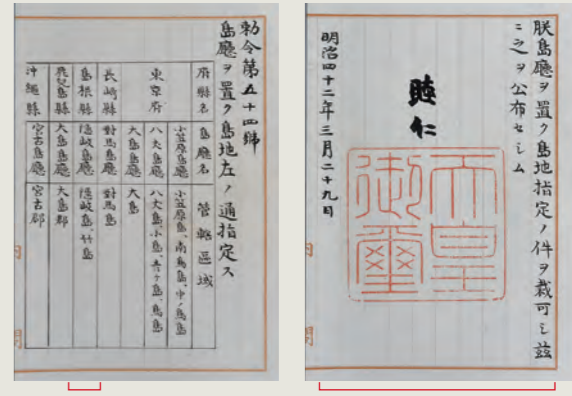 朕島廳ヲ置ク島地指定ノ件ヲ裁可シ茲
ニ之ヲ公布セシム
睦仁
天皇
御璽
明治四十二年三月二十九日
勅令第五十四號
島廳ヲ置ク島地左ノ通指定ス
府縣名 島廳名 管轄區域
東京府 小笠原島廳 小笠原島、南鳥島、中ノ鳥島
八丈島廳 八丈島、小島、青ヶ島、鳥島
大島廳 大島
長崎縣 對馬島廳 對馬島
島根縣 隱岐島廳 隱岐島、竹島
鹿兒島縣 大島島廳 大島郡
沖繩縣 宮古島廳 宮古郡